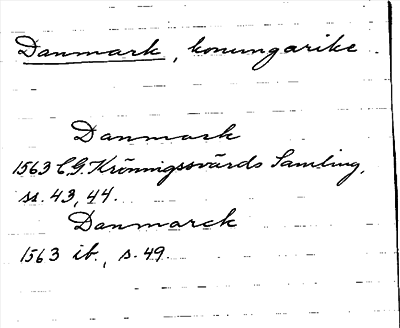 Danmark, konungarike
Danmark
1563 C.G. Krönnigssvärds Samling,
ss. 43, 44.
Danmarck
1563 ib., s. 49.